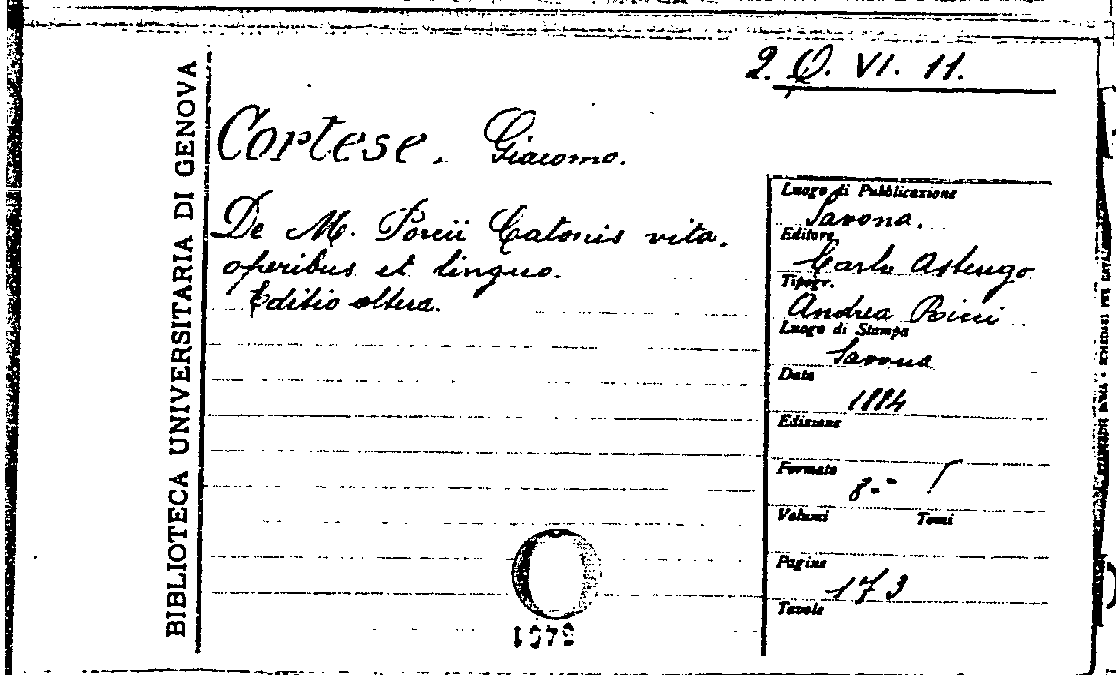 2. Q. VI. 11.
BIBLIOTECA UNIVERSITARIA DI GENOVA
Cortese. Giacomo.
De M. Porcii Catonis vita,
operibus et lingua.
Editio altera.
Luogo di Pubblicazione
Savona.
Editore
Carlo Astengo
Tipogr.
Andrea Ricci
Luogo di Stampa
Savona
Data
1884
Edizione
Formato
8.°
Volumi Tomi
Pagine
173
Tavole